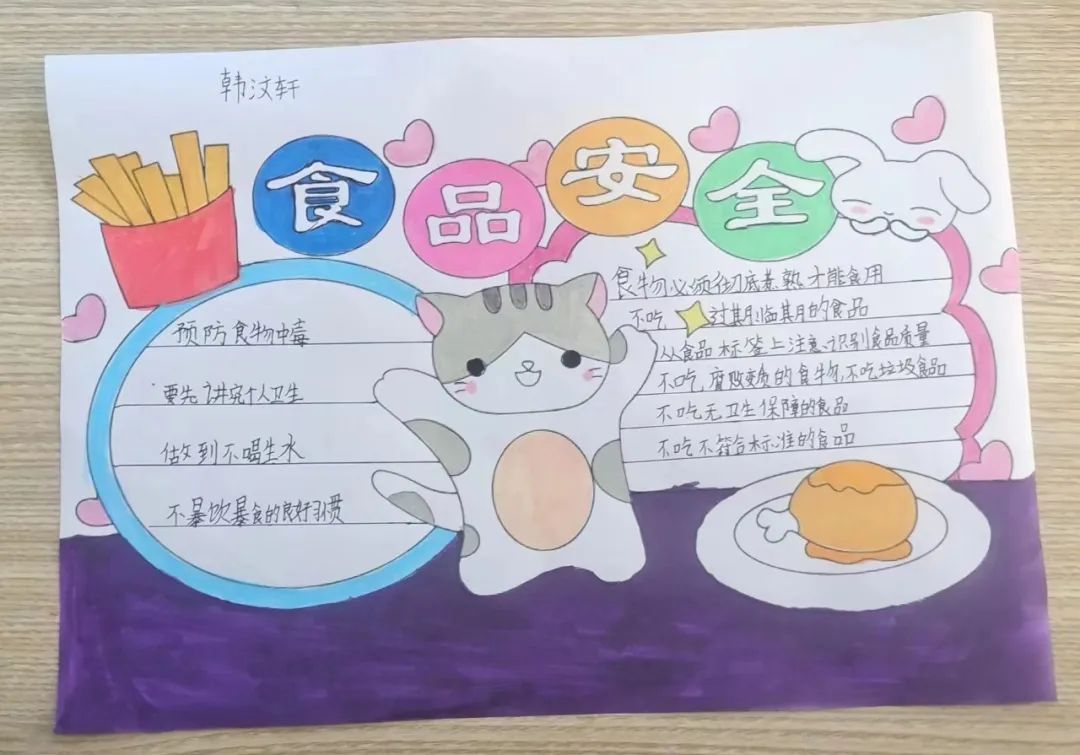 韩汶轩
食品安全
预防食物中毒
要先讲究个人卫生
做到不喝生水
不暴饮暴食的良好习惯
食物必须彻底煮熟才能食用
不吃过期临期的食品
从食品标签上注意识别食品质量
不吃腐败变质的食物,不吃垃圾食品
不吃无卫生保障的食品
不吃不符合标准的食品